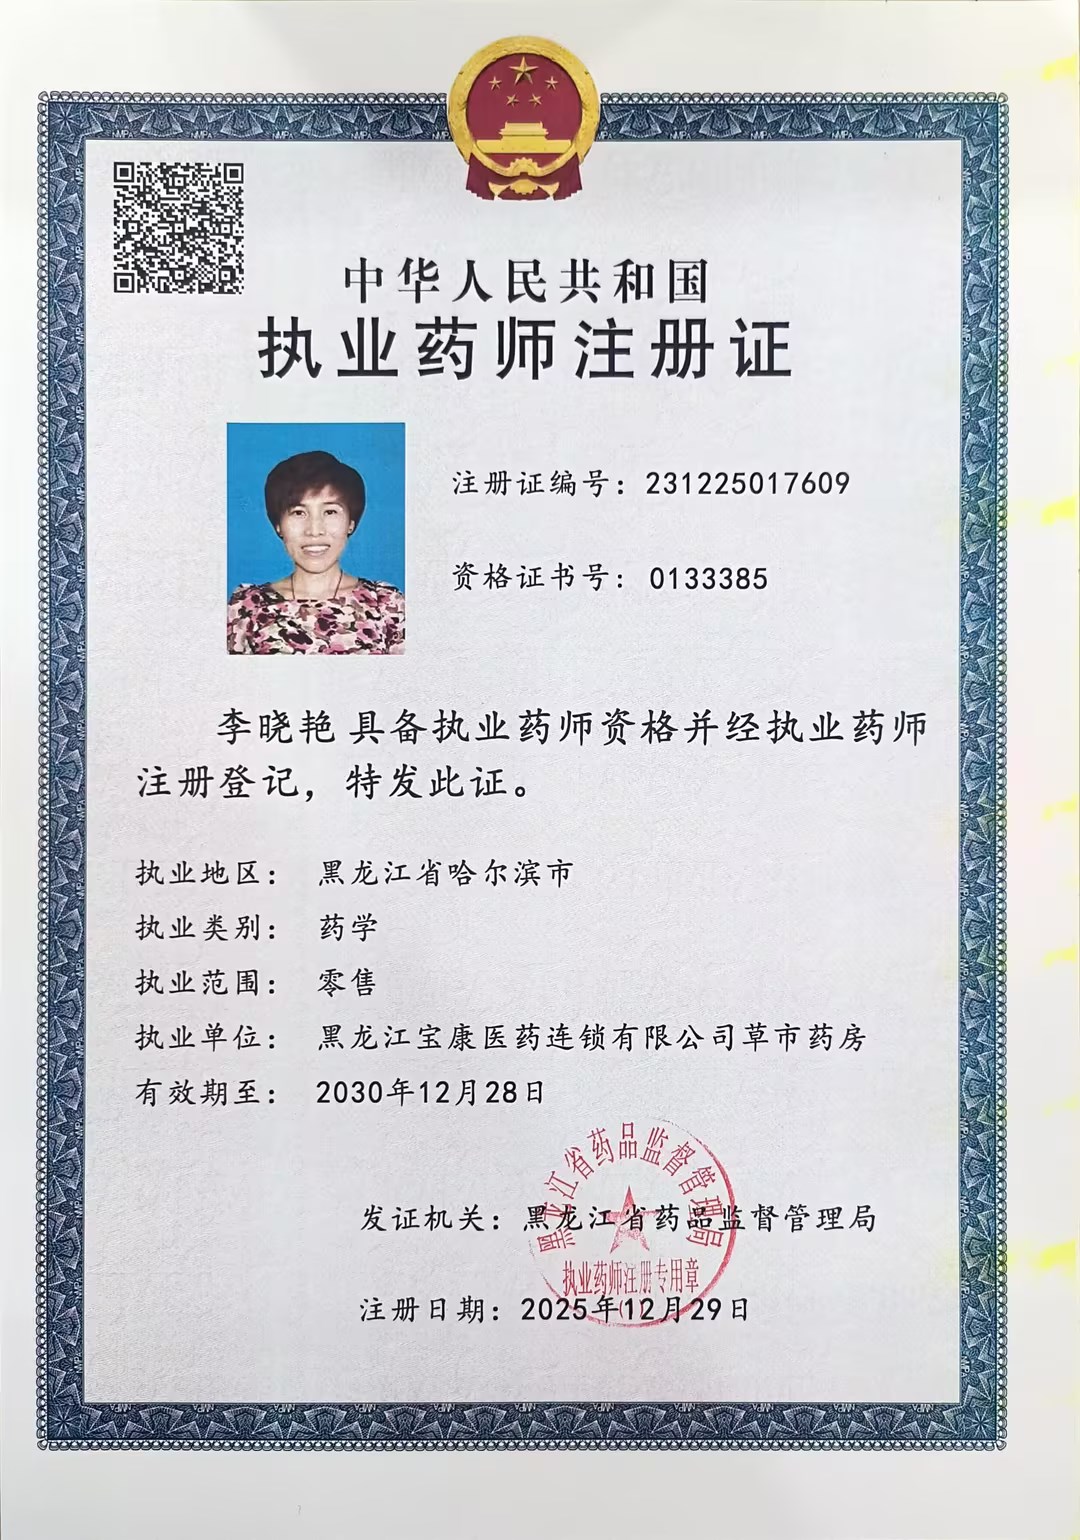 中华人民共和国
执业药师注册证
注册证编号：231225017609
资格证书号：0133385
李晓艳 具备执业药师资格并经执业药师
注册登记，特发此证。
执业地区： 黑龙江省哈尔滨市
执业类别： 药学
执业范围： 零售
执业单位： 黑龙江宝康医药连锁有限公司草市药房
有效期至： 2030年12月28日
发证机关：黑龙江省药品监督管理局
注册日期：2025年12月29日
黑龙江省药品监督管理局
执业药师注册专用章